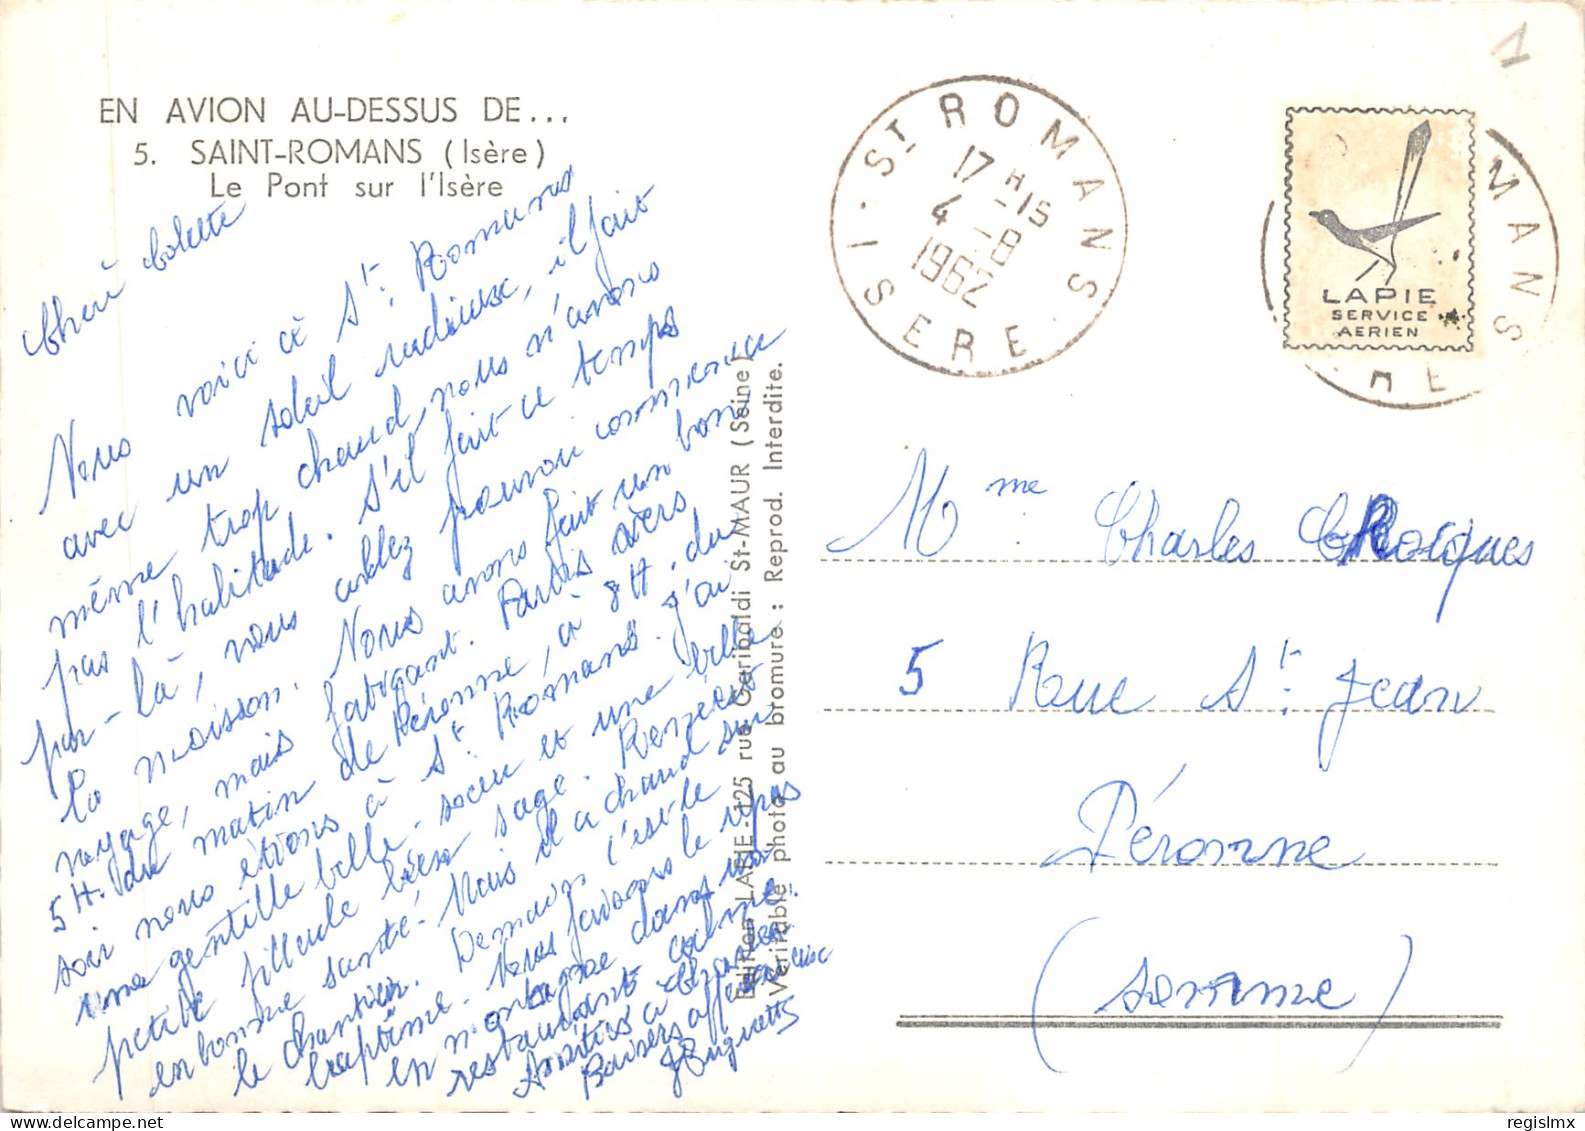 EN AVION AU-DESSUS DE...
5. SAINT-ROMANS (Isère)
Le Pont sur l'Isère
Chère Colette
Nous voici à St: Romans
avec un soleil radieux, il fait
même trop chaud, nous n'avons
pas l'habitude. S'il fait ce temps
par-là, vous allez pouvoir commencer
la maison. Nous avons fait un bon
voyage, mais fatigant. Partis vers
5H. du matin de Péronne, à 8H. du
soir nous étions à St: Romans. J'ai
une gentille belle-soeur et une belle
petite filleule bien sage.
en bonne santé. Mais il a chaud sur
le chantier. Demain c'est le
baptême. Nous faisons le repas
en montagne dans un
restaurant calme.
Amitiés à Charles
Baisers affectueux
Huguette
Edition LAPIE - 125 rue Garibaldi St-MAUR (Seine)
Véritable photo au bromure : Reprod. Interdite.
St ROMANS
17 H -15
4 - 8
1962
ISERE
MANS
LAPIE
SERVICE
AERIEN
1
Mme: Charles CRocques
5 Rue St: Jean
Péronne
(Somme)
delcampe.net
regislmx